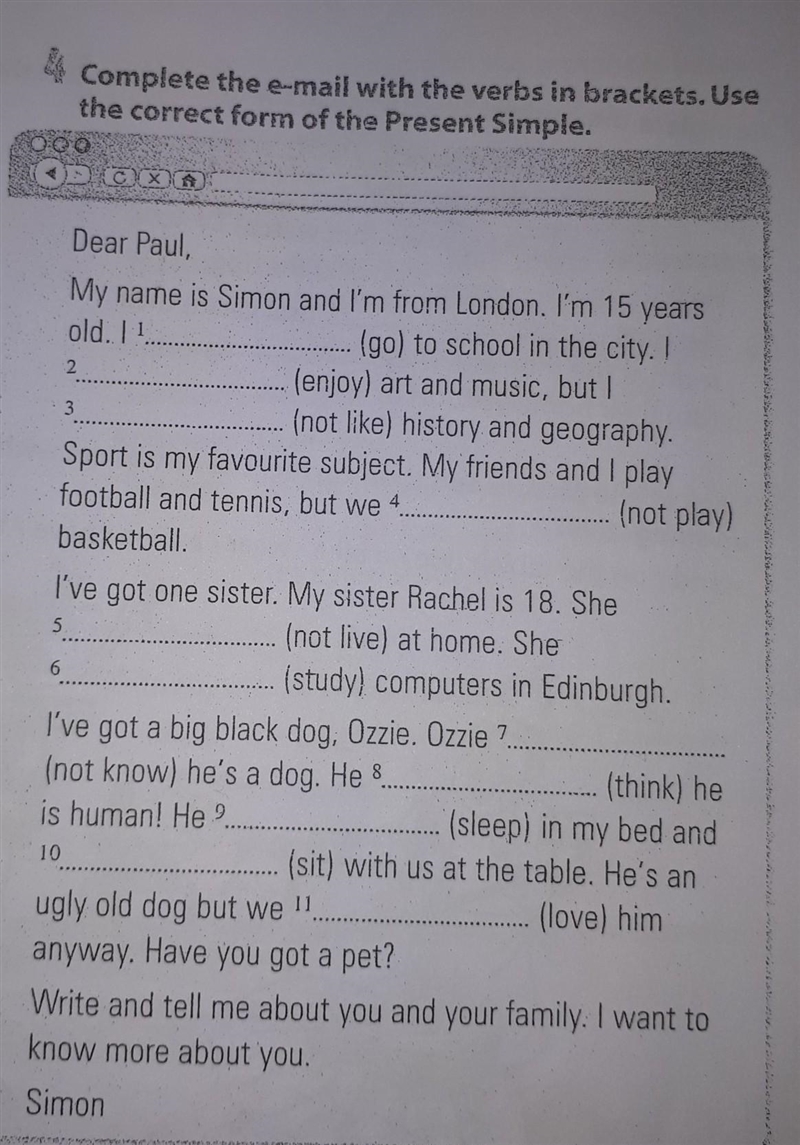 4 Complete the e-mail with the verbs in brackets. Use
the correct form of the Present Simple.
Dear Paul,
My name is Simon and I'm from London. I'm 15 years
old. I 1.................................. (go) to school in the city. I
2.................................. (enjoy) art and music, but I
3.................................. (not like) history and geography.
Sport is my favourite subject. My friends and I play
football and tennis, but we 4.................................. (not play)
basketball.
I've got one sister. My sister Rachel is 18. She
5.................................. (not live) at home. She
6.................................. (study) computers in Edinburgh.
I've got a big black dog, Ozzie. Ozzie 7..................................
(not know) he's a dog. He 8.................................. (think) he
is human! He 9.................................. (sleep) in my bed and
10.................................. (sit) with us at the table. He's an
ugly old dog but we 11.................................. (love) him
anyway. Have you got a pet?
Write and tell me about you and your family. I want to
know more about you.
Simon